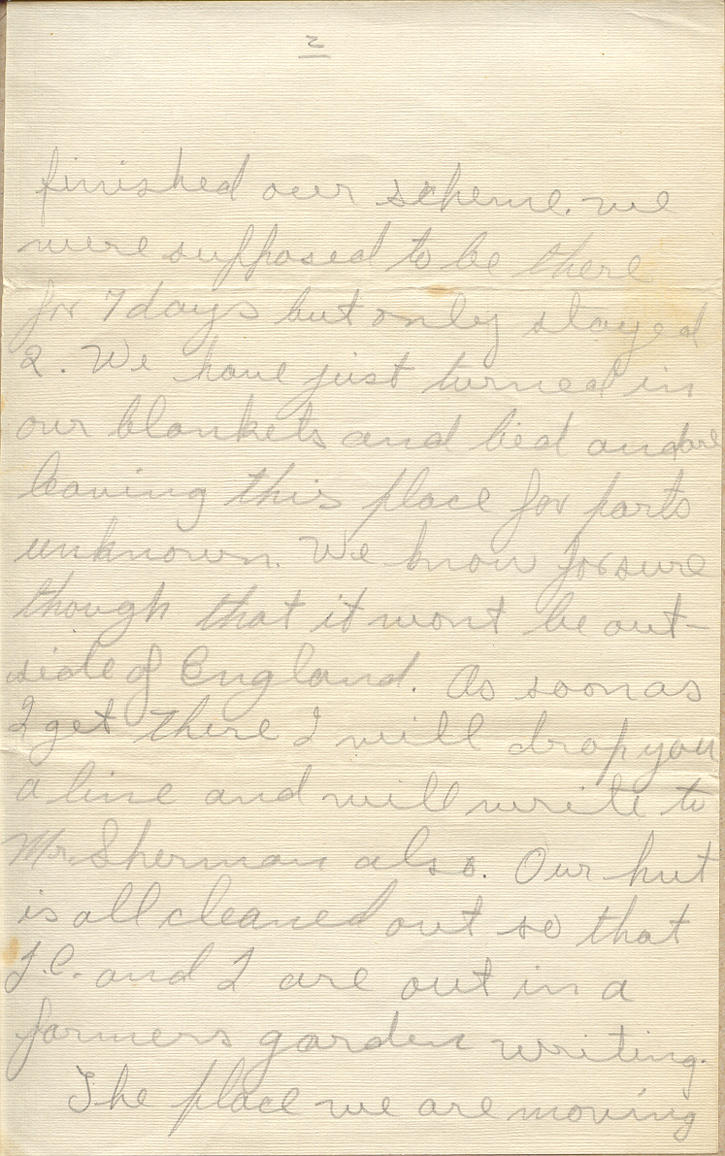 2
finished our scheme. we
were supposed to be there
for 7 days but only stayed
2. We have just turned in
our blankets and bed and are
leaving this place for parts
unknown. We know for sure
though that it wont be out-
side of England. As soon as
I get there I will drop you
a line and will write to
Mr. Sherman also. Our hut
is all cleaned out so that
J.C. and I are out in a
farmers garden writing.
The place we are moving